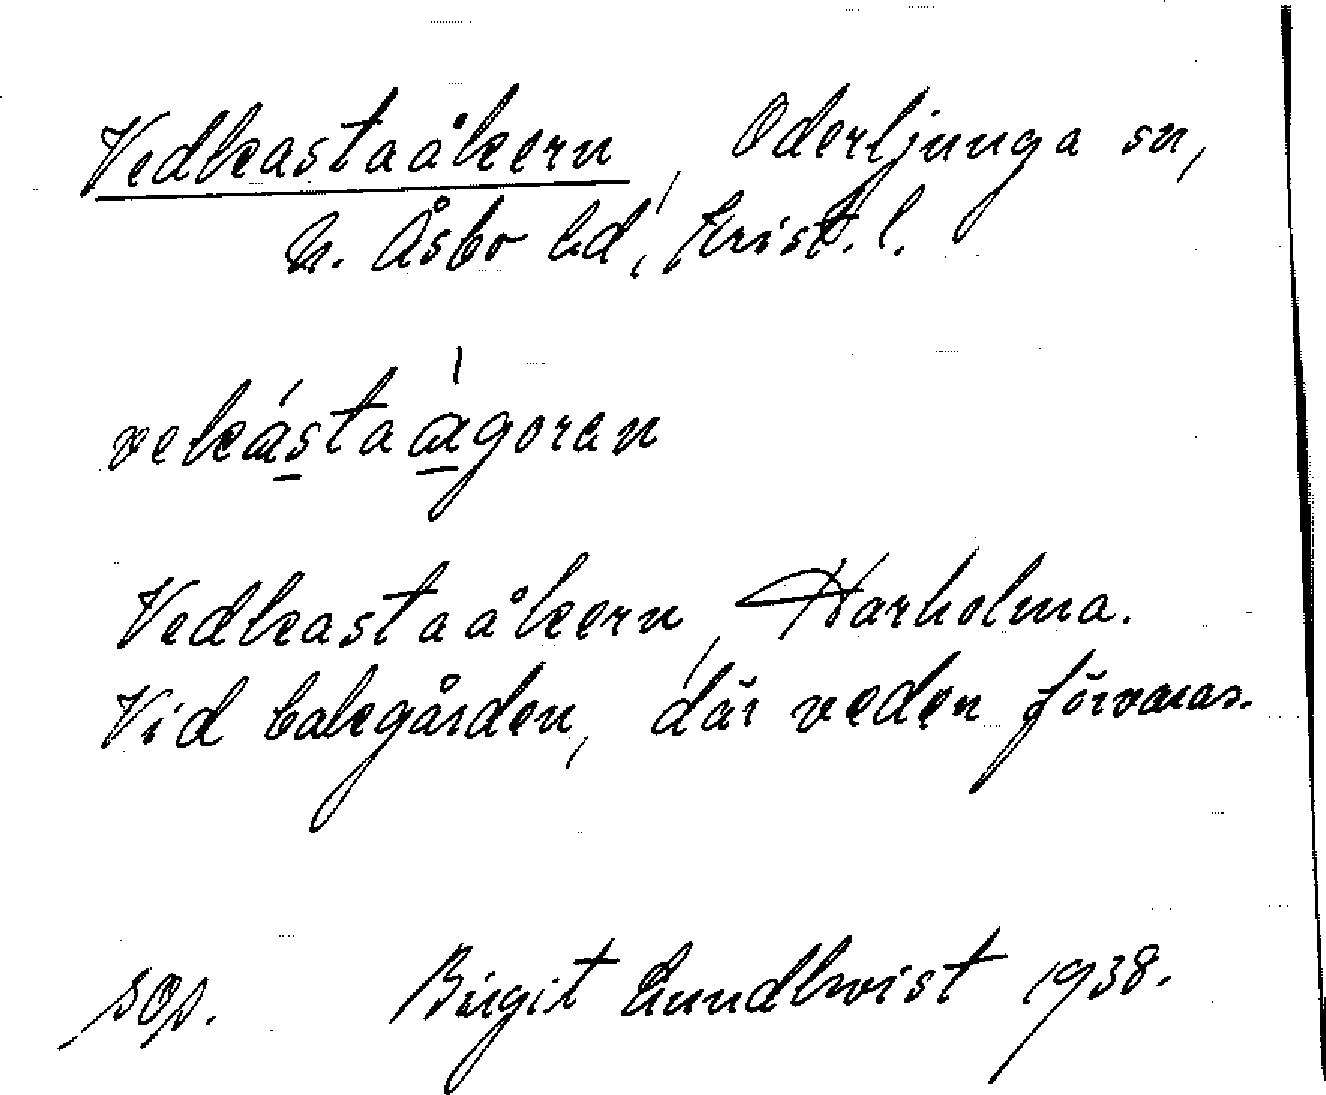 Vedkastaåkern, Oderljunga sn,
N. Åsbo hd, Krist. l.
vekástaágoran
Vedkastaåkern, Harholma.
Vid bakgården, där veden förvaras.
sop. Birgit Lundkvist 1938.